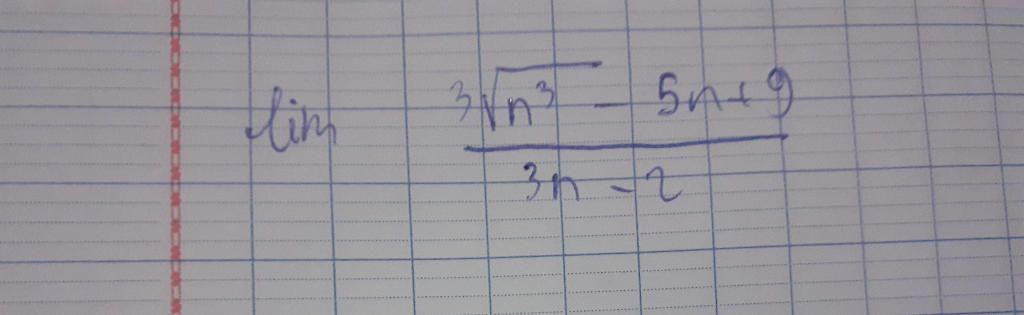 lim \frac{\sqrt[3]{n^3} - 5n + 9}{3n - 2}